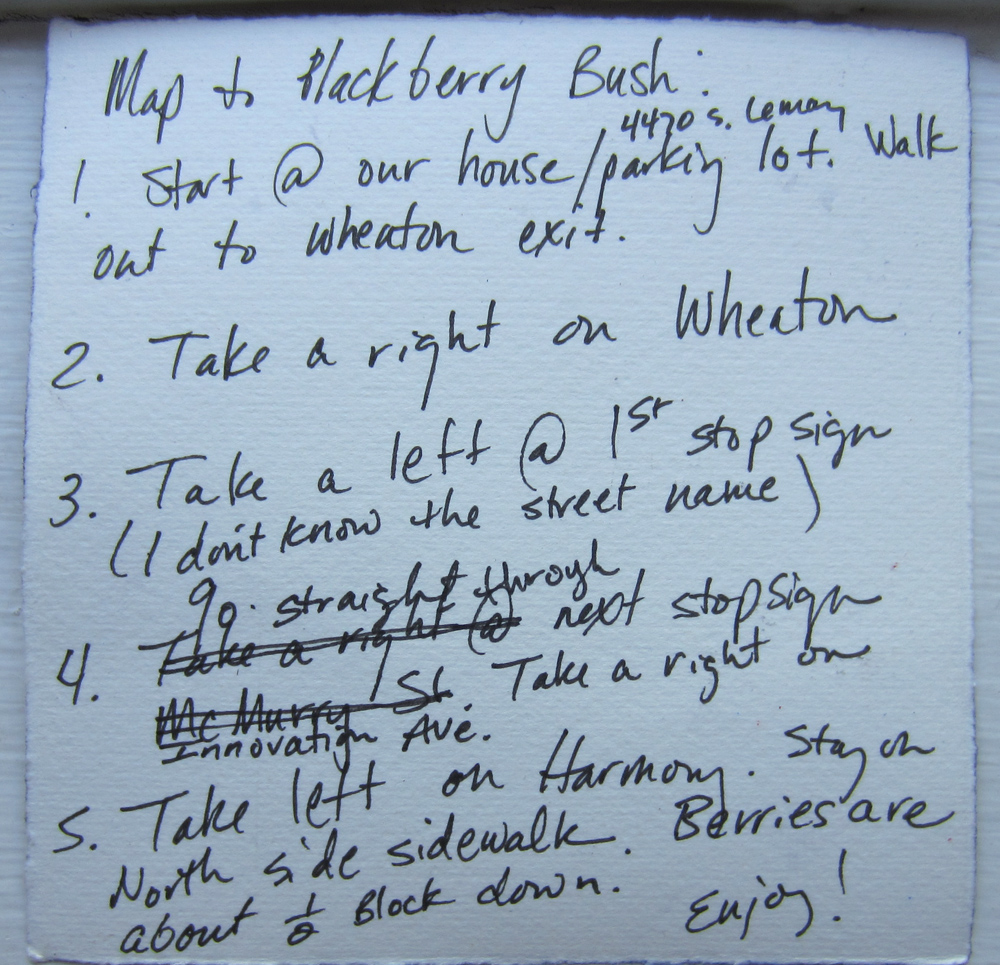 Map to Blackberry Bush:
4470 S. Lemay
1. Start @ our house/parking lot. Walk
out to Wheaton exit.
2. Take a right on Wheaton
3. Take a left @ 1st stop sign
(I don't know the street name)
go straight through
4. Take a right @ next stop sign
McMurry St. Take a right on
Innovation Ave.
5. Take left on Harmony. Stay on
North side sidewalk. Berries are
about 1/2 Block down. Enjoy!